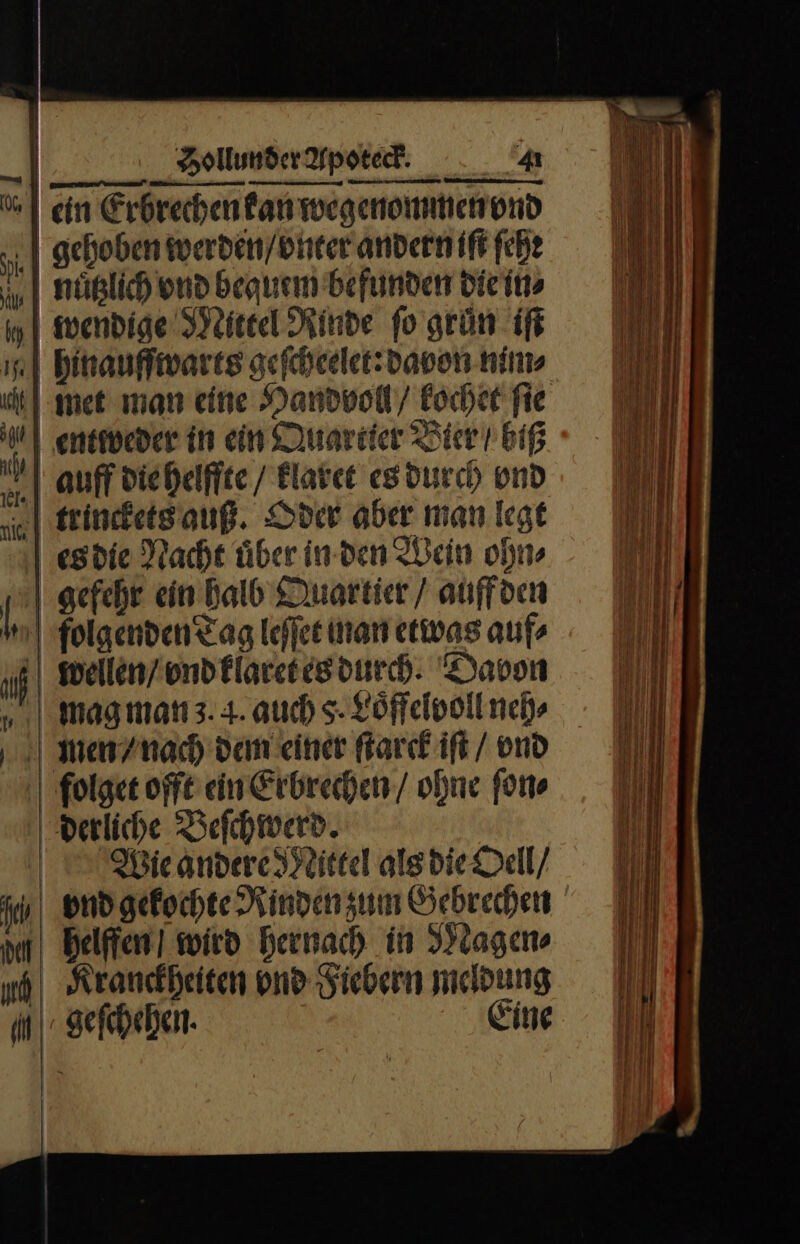 Hollunder Apoteck. 41
ein Erbrechen kan wegenommen vnd
gehoben werden/vnter andern iſt ſehr
nuͤtzlich vnd bequem befunden die in⸗
wendige Mittel Rinde ſo gruͤn iſt
hinauffwarts geſcheelet: davon nim⸗
met man eine Handvoll / kochet ſie
entweder in ein Quartier Bier / biß
auff die helffte / klaret es durch vnd
trinckets auß. Oder aber man legt
es die Nacht uͤber in den Wein ohn⸗
gefehr ein halb Quartier / auff den
folgenden Tag leſſet man etwas auf⸗
wellen/ vnd klaret es durch. Davon
mag man 3. 4. auch 5. Loͤffelvoll neh⸗
men / nach dem einer ſtarck iſt / vnd
folget offt ein Erbrechen / ohne ſon⸗
derliche Beſchwerd.
Wie andere Mittel als die Oell /
vnd gekochte Rinden zum Gebrechen
helffen / wird hernach in Magen⸗
Kranckheiten vnd Fiebern meldung
geſchehen. Eine